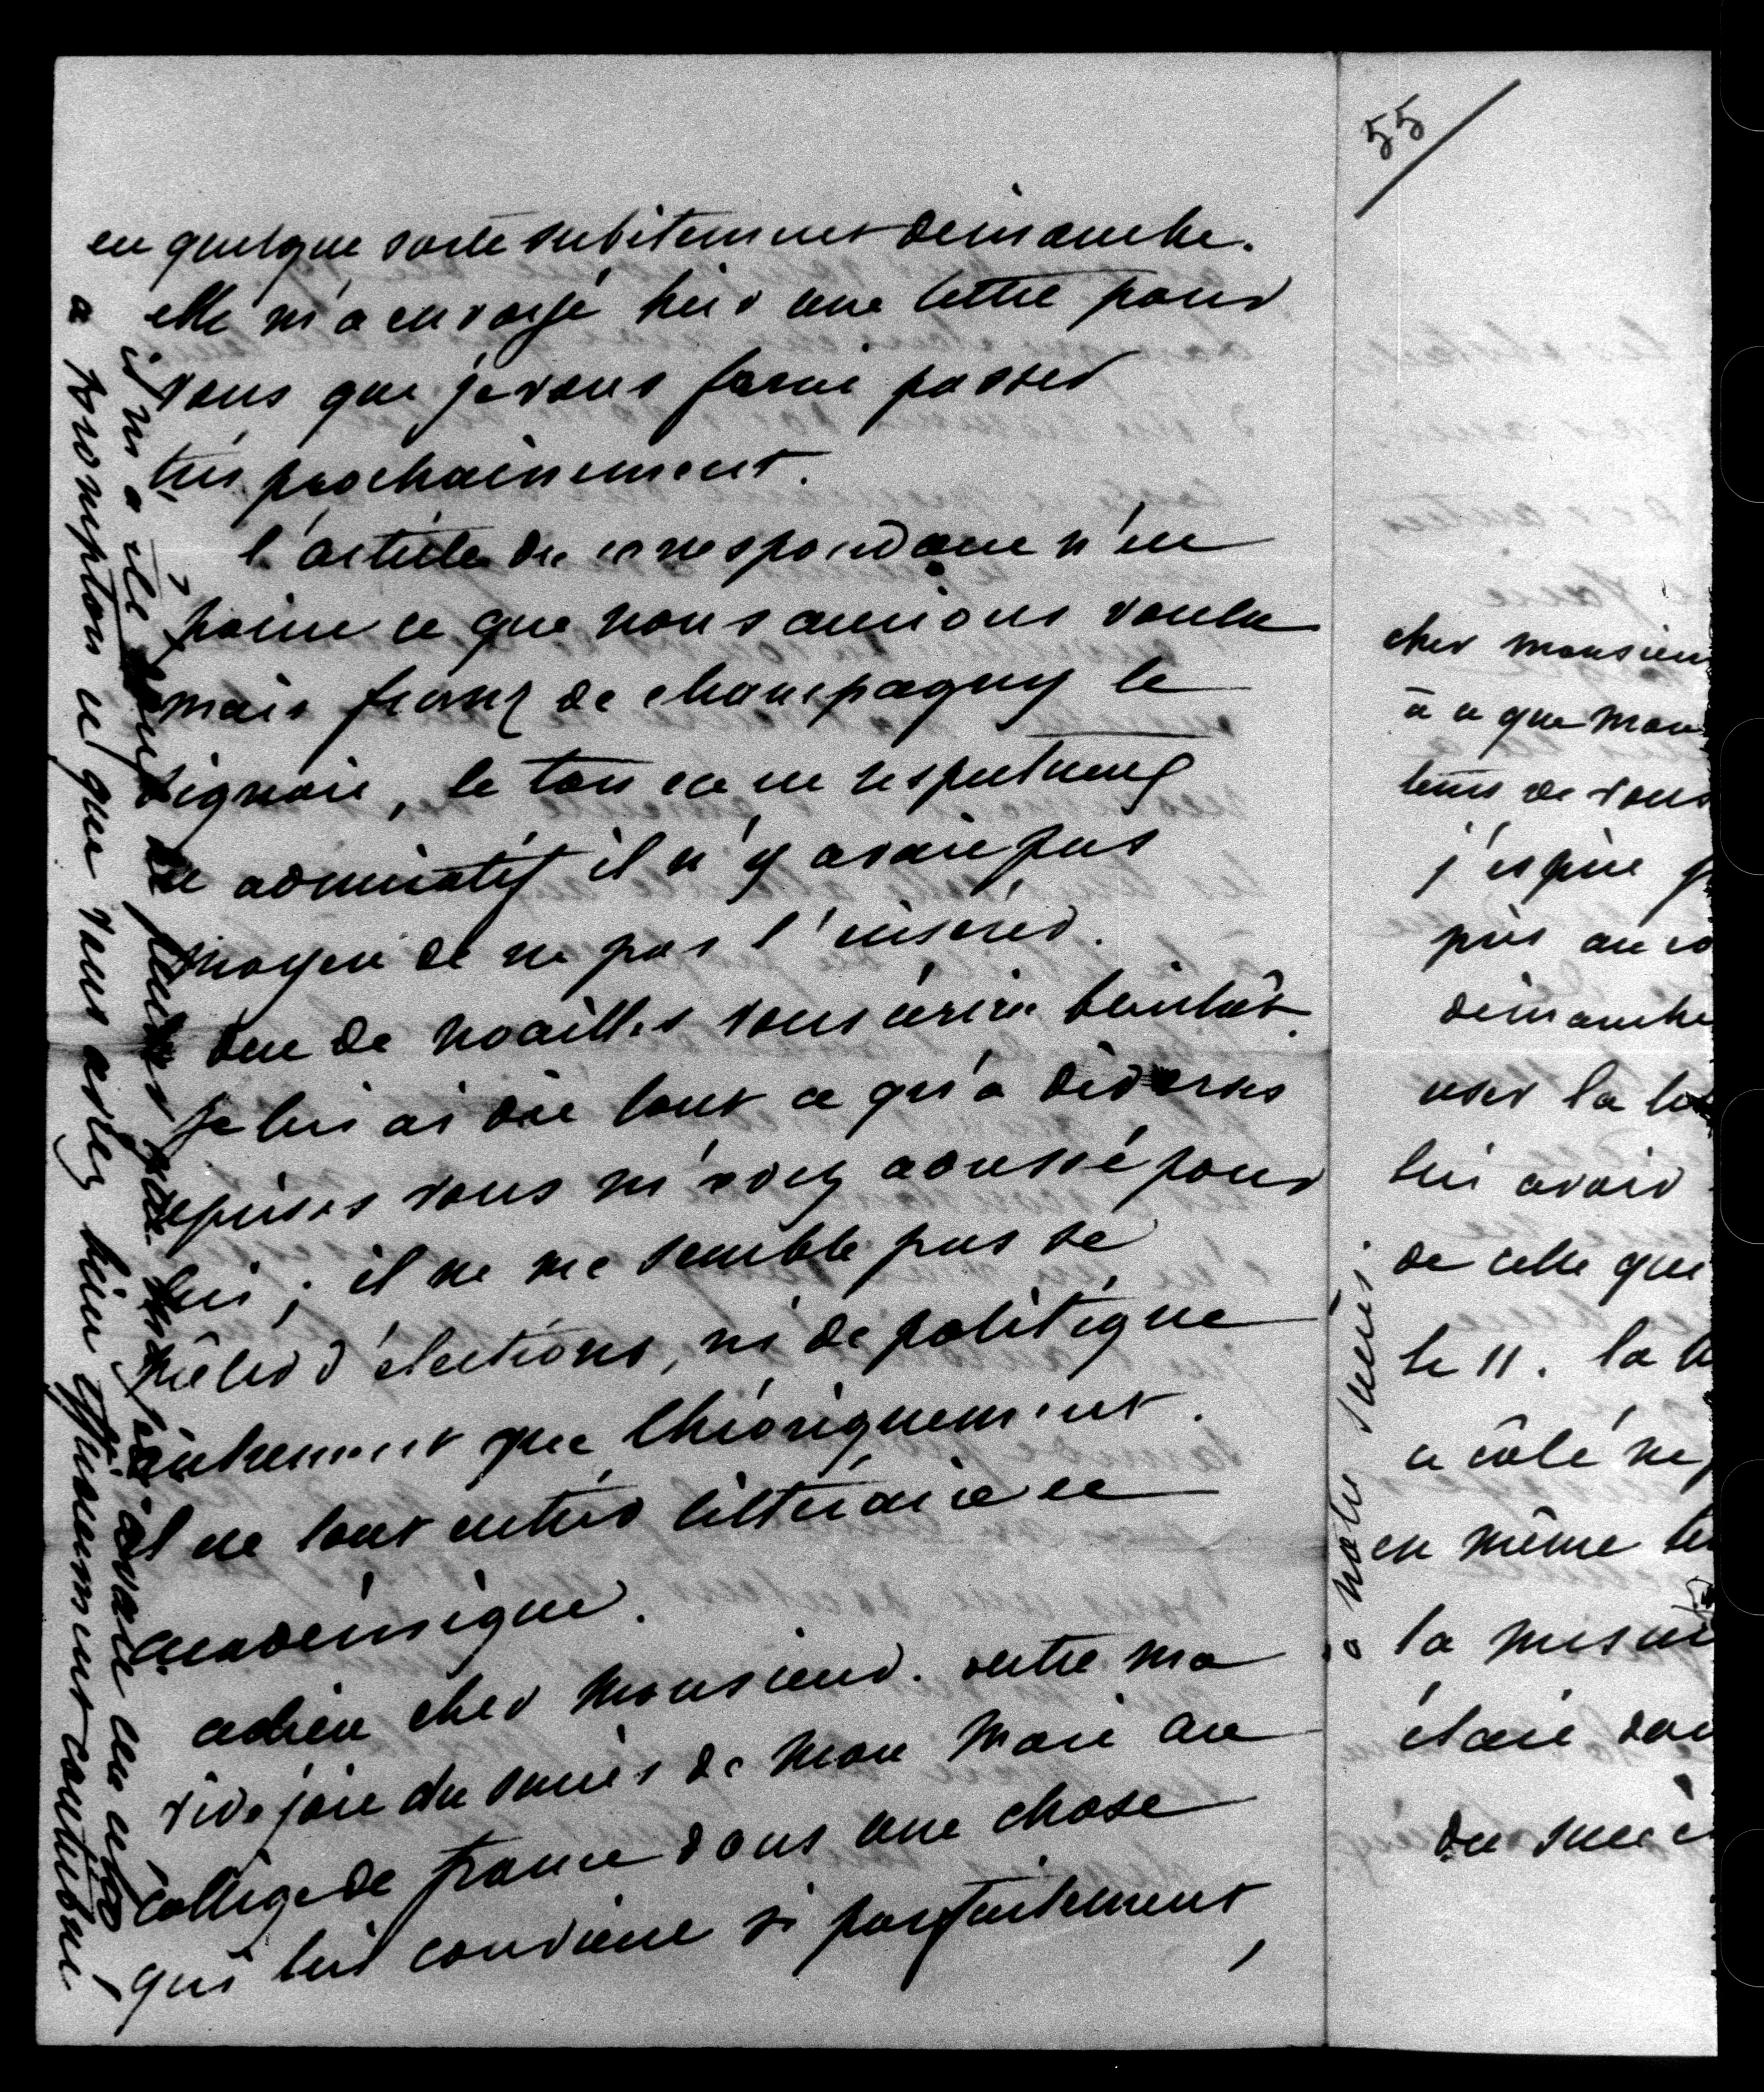 en quelque sorte subitement dimanche.
elle m'a envoyé hier une lettre pour
vous que je vous ferai passer
très prochainement.
l'article du correspondant n'est
point ce que nous aurions voulu
mais franz de champagny le
signait, le ton est respectueux
et admiratif il n'y avait pas
moyen de ne pas l'insérer.
duc de noailles vous écrira bientôt.
je lui ai dit tout ce qu'à diverses
reprises vous m'avez adressé pour
lui ; il ne me semble pas se
mêler d'élections, ni de politique
autrement que théoriquement.
il est tout entier littéraire et
académique.
adieu cher monsieur. votre ma
vive joie du succès de mon mari au
collège de france dans une chose
qui lui convient si parfaitement,
il m'a été pour
à Brompton et que vous avez bien efficacement contribué
à notre succès.
55
cher monsieu
à ce que mon
tems de vous
j'espère
près au co
dimanche
user la
lui avoir
de celle que
le 11. la
a côté ne
en même te
la mesur
était dou
du succè